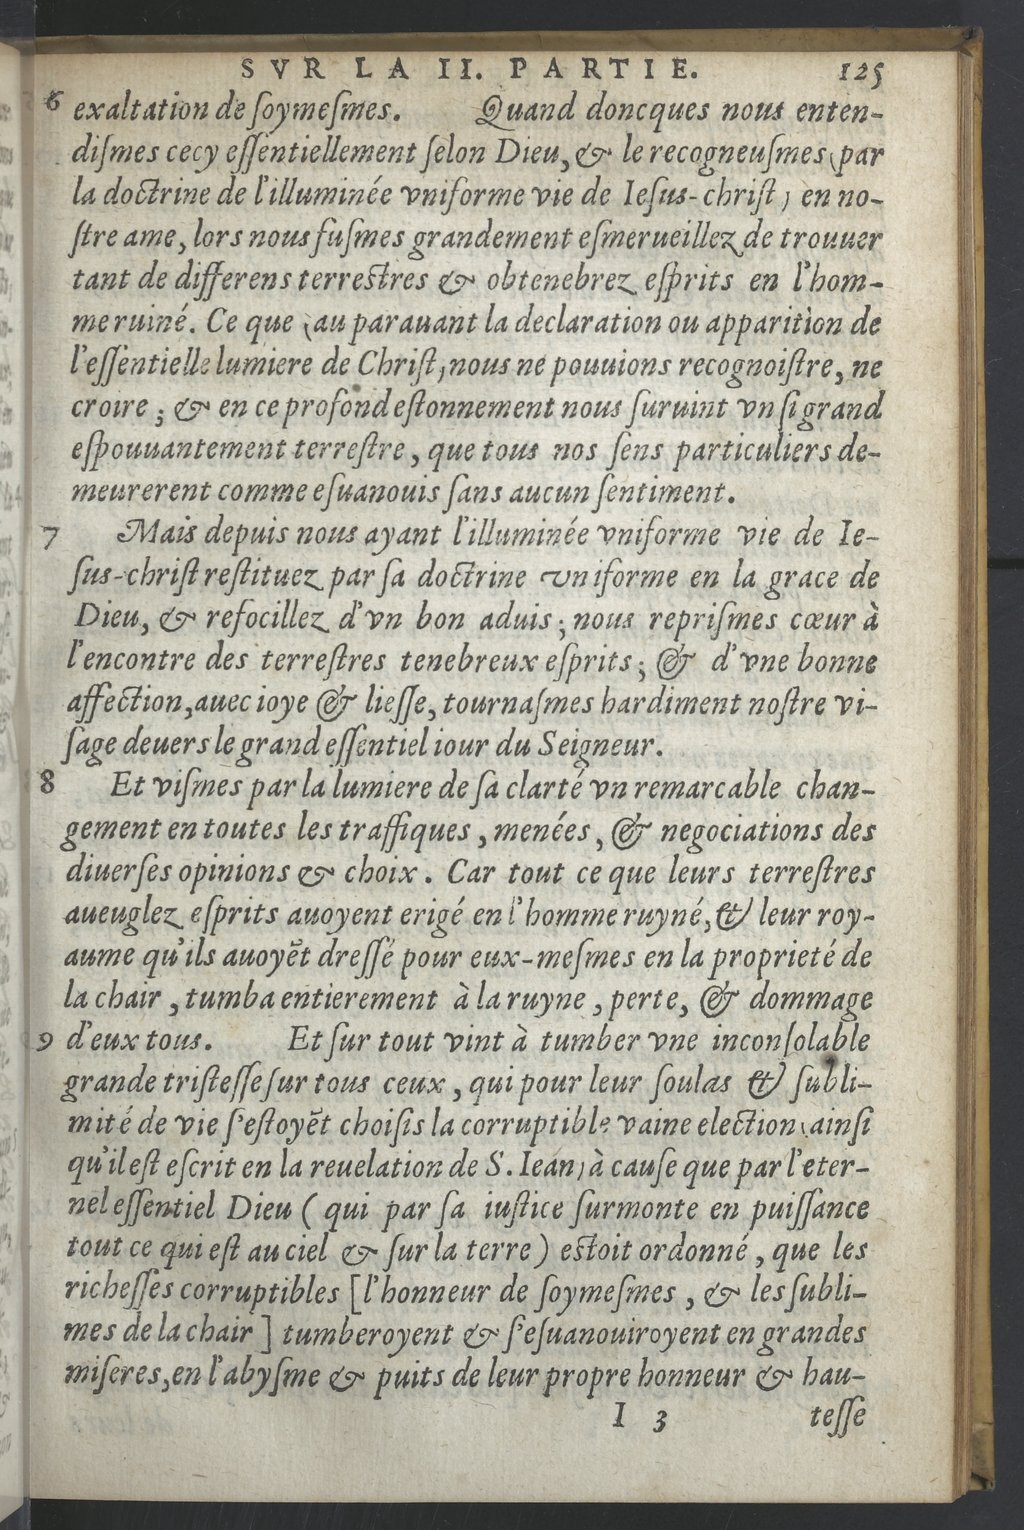 SVR LA II. PARTIE. 125
6 exaltation de ſoymeſmes. Quand doncques nous enten-
diſmes cecy eſſentiellement ſelon Dieu, & le recogneuſmes (par
la doctrine de l'illuminée vniforme vie de Ieſus-chriſt) en no-
ſtre ame, lors nous fuſmes grandement eſmerueillez de trouuer
tant de differens terrestres & obtenebrez eſprits en l'hom-
me ruiné. Ce que (au parauant la declaration ou apparition de
l'eſſentielle lumiere de Chriſt) nous ne pouuions recognoiſtre, ne
croire; & en ce profond eſtonnement nous ſuruint vn ſi grand
eſpouuantement terreſtre, que tous nos ſens particuliers de-
meurerent comme eſuanouis ſans aucun ſentiment.
7 Mais depuis nous ayant l'illuminée vniforme vie de Ie-
ſus-chriſt reſtituez par ſa doctrine vniforme en la grace de
Dieu, & refocillez d'vn bon aduis; nous repriſmes cœur à
l'encontre des terreſtres tenebreux eſprits; & d'vne bonne
affection, auec ioye & lieſſe, tournaſmes hardiment noſtre vi-
ſage deuers le grand eſſentiel iour du Seigneur.
8 Et viſmes par la lumiere de ſa clarté vn remarcable chan-
gement en toutes les traffiques, menées, & negociations des
diuerſes opinions & choix. Car tout ce que leurs terreſtres
aueuglez eſprits auoyent erigé en l'homme ruyné, & leur roy-
aume qu'ils auoyẽt dreſſé pour eux-meſmes en la proprieté de
la chair, tumba entierement à la ruyne, perte, & dommage
9 d'eux tous. Et ſur tout vint à tumber vne inconſolable
grande triſteſſe ſur tous ceux, qui pour leur ſoulas & ſubli-
mité de vie ſ'eſtoyẽt choiſis la corruptible vaine election (ainſi
qu'il eſt eſcrit en la reuelation de S. Iean) à cauſe que par l'eter-
nel eſſentiel Dieu (qui par ſa iuſtice ſurmonte en puiſſance
tout ce qui eſt au ciel & ſur la terre) estoit ordonné, que les
richeſſes corruptibles [l'honneur de ſoymeſmes, & les ſubli-
mes de la chair] tumberoyent & ſ'eſuanouiroyent en grandes
miſeres, en l'abyſme & puits de leur propre honneur & hau-
I 3 teſſe